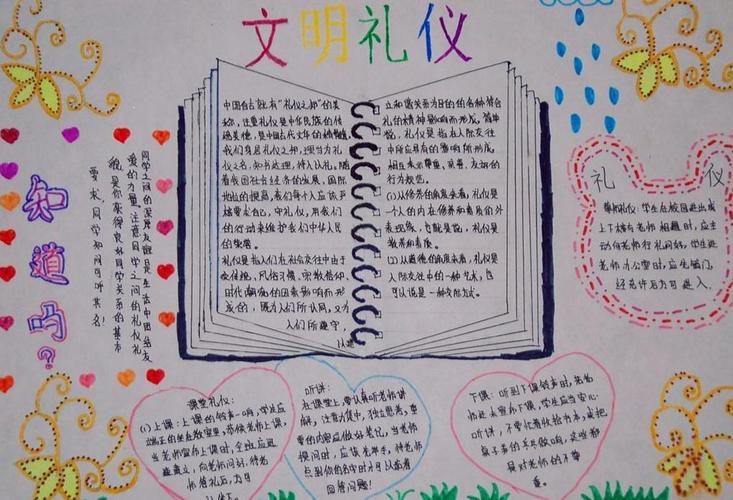 文明礼仪
中国自古就有"礼仪之邦"的美
称,注重礼仪是中华民族的传
统美德,是中国古代文年的精
我们身居礼仪之邦,理当为礼
仪之名,知书达理,待人以礼。随
着我国社会经济的发展,国际
地位的提高,我们每个人应该严
格要求自己,守礼仪,用我们
的行动来维护我们中华人民
的
礼仪是指人们在社会交往中由于
受传统,风俗习惯,宗教信仰,
时代潮流的因素影响而形
成的,既为人们所认同,又为
人们所遵守,
以建
立和谐关系为目的的各种符合
礼的精神影响而形成。简单
说,礼仪是指在人际交往
中所应具有的
相互表示尊重、友好的
行为规范。
(1)从修养的角度来看,礼仪是
一个人的内在修养和素质的外
表现,也就是说,礼仪是
教养和素质。
(2)从道德的角度来看,礼仪是
人际交往中的一种艺术,也
可以说是一种交际方式。
知道吗?
同学之间的深厚友谊是生活中团结友
爱的力量,注意同学之间的礼仪礼
貌是你获得良好同学关系的基本
要求,同学如间可听其名!
礼 仪
尊师礼仪:学生在校园进出或
上下楼与老师相遇时,应主
动向老师行礼问好。学生进
老师办公室时,应先敲门,
经允许后方可进入。
课堂礼仪:
(1)上课:上课的铃声一响,学生应
端正的坐在教室里,恭候老师上课,
当老师宣布上课时,全班应迅
速,向老师问好,待老
师答礼后,方可
以坐下。
听讲:
在课堂上,要认真听老师讲
解,注意力集中,独立思考,重
要的内容应做好笔记。当老师
提问时,应该先举手,待老师
点到你的名字时才可以站着
回答问题!
下课:听到下课铃声时,老
师还未宣布下课,学生应当安心
听讲,不要忙着收拾书本,或把
桌子弄的乒乓做响,这些都
是对老师的不尊
重。